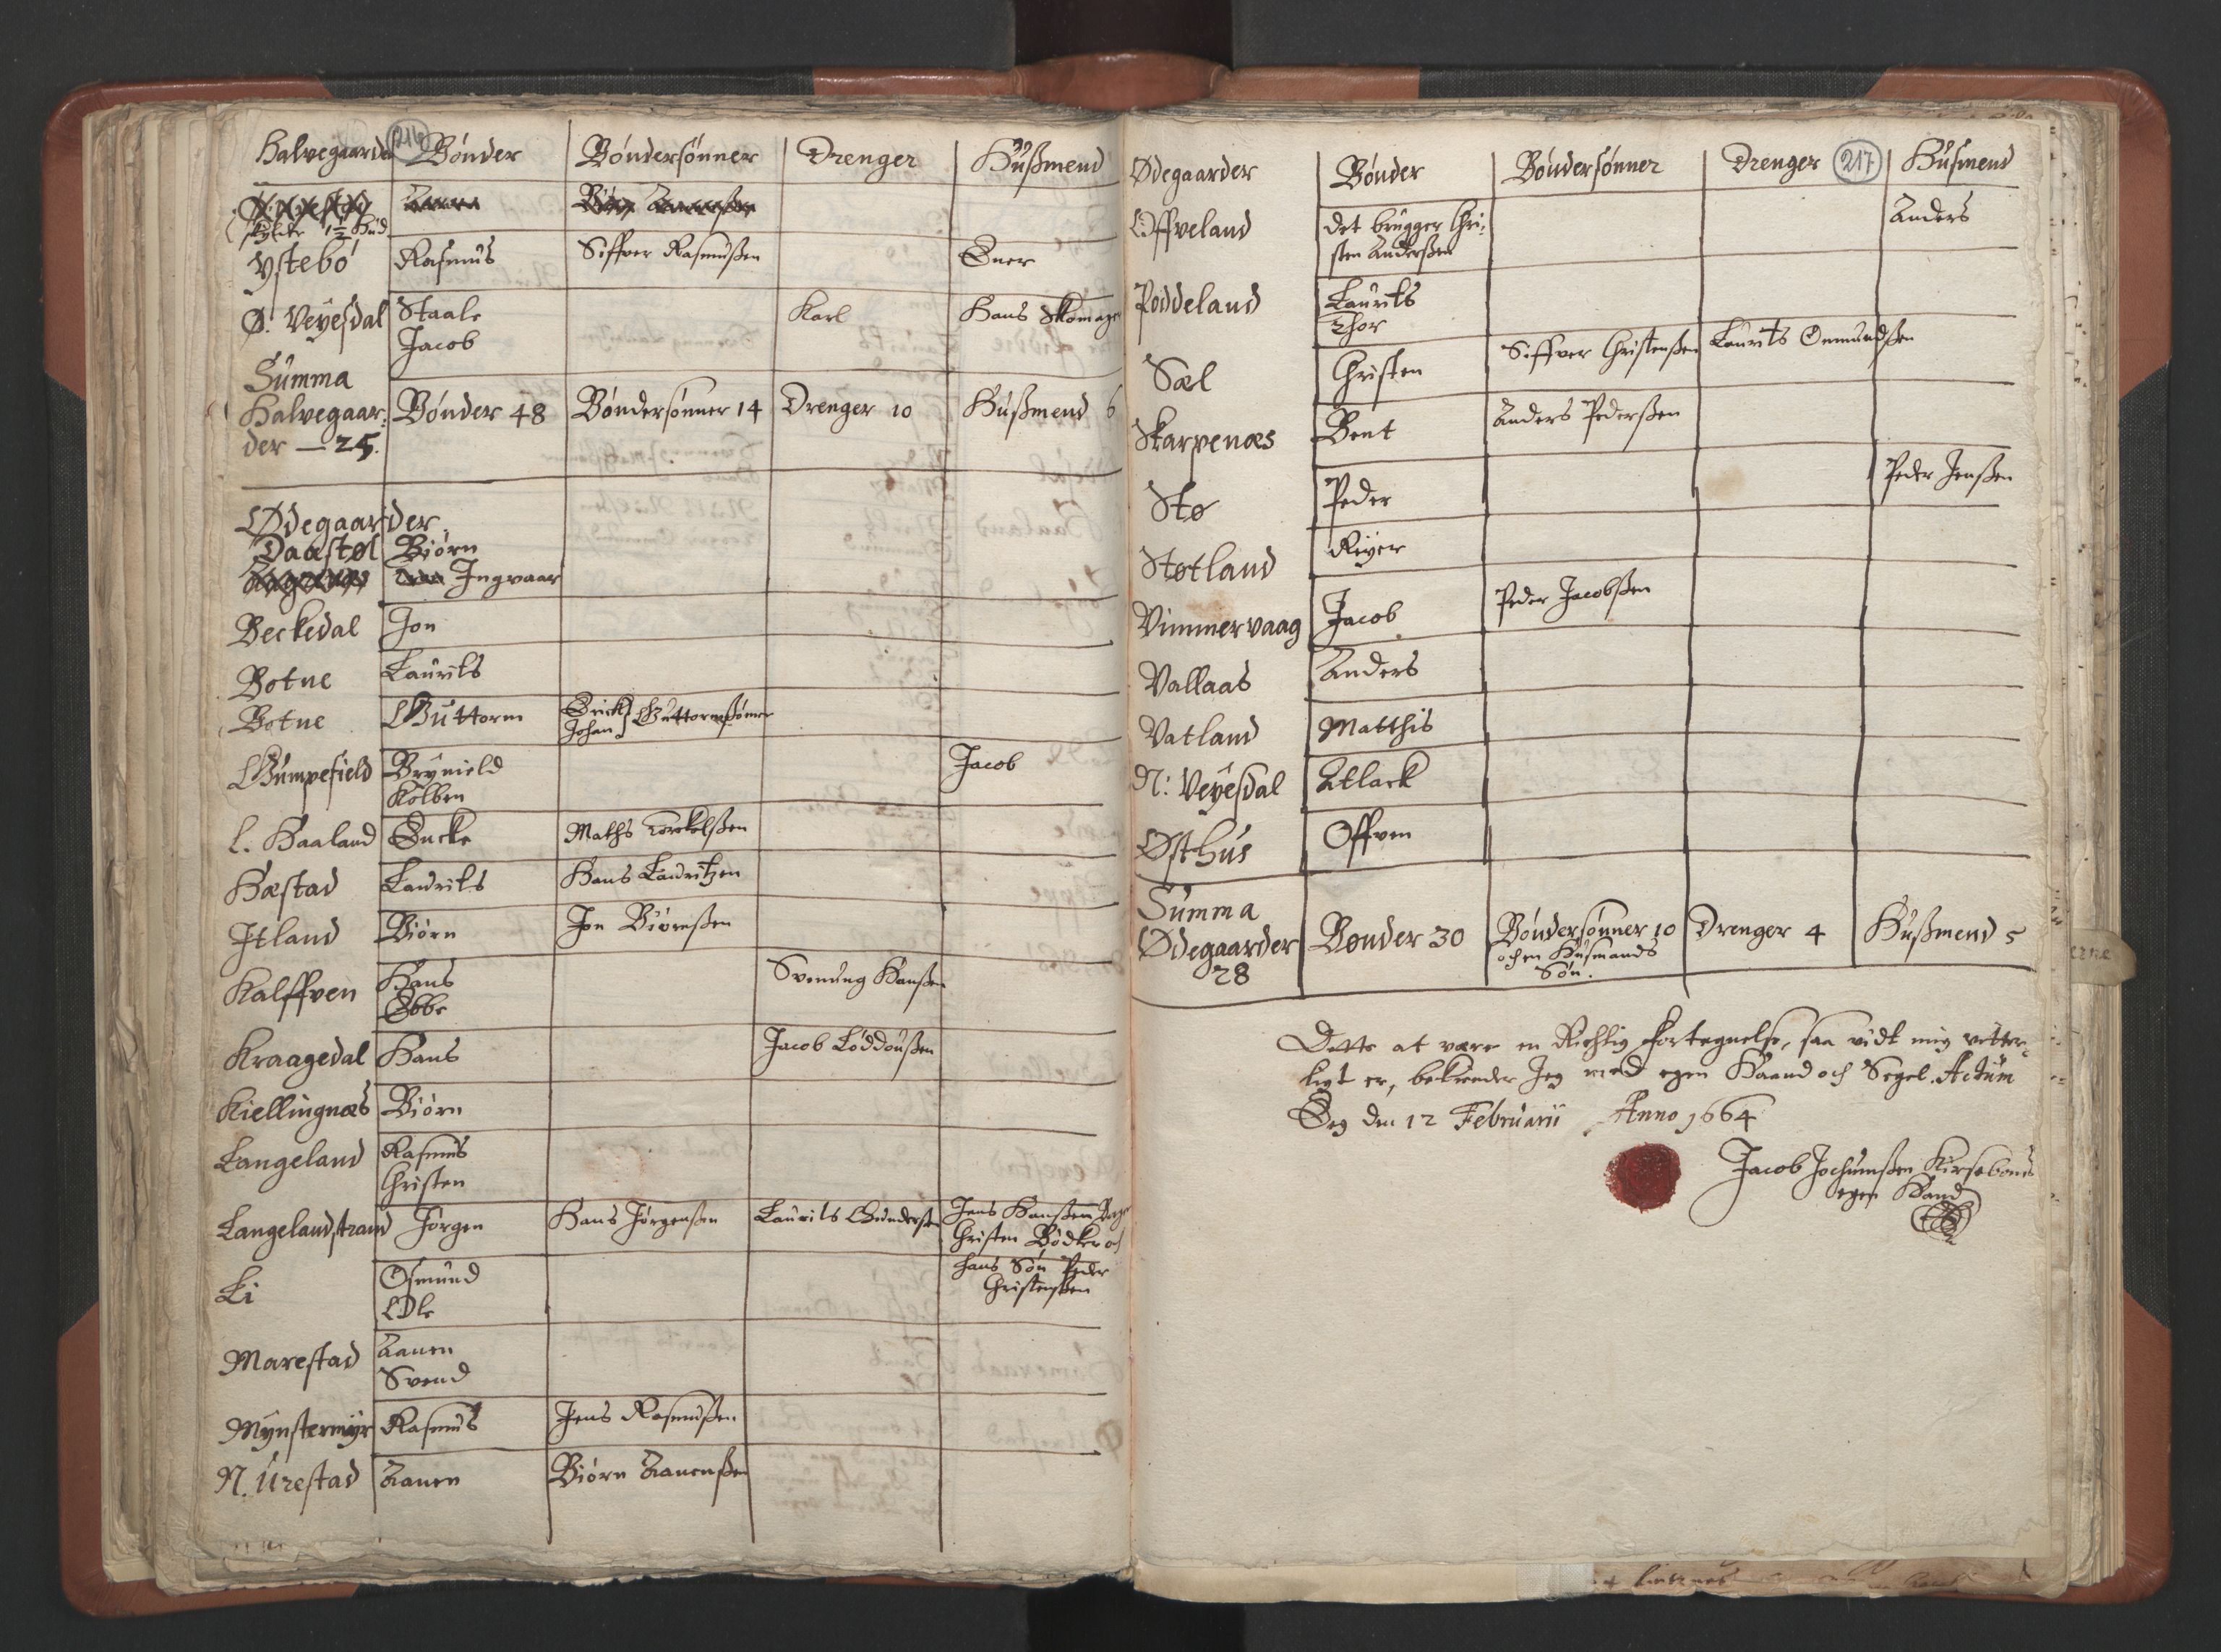 Halvegaarder 216 Bönder Böndersönner Drenger Hußmend
skylder 1½ Hud
Ystebö Rasmus Siffver Rasmußen Ener
Ø. Veyesdal Staale Karl Hans Skomager
Jacob
Summa
Halvegaar: Bönder 48 Böndersönner 14 Drenger 10 Hußmend 6
der — 25.
Ødegaarder
Daastøl Biörn
Ingvaar
Beckedal Jon
Botne Laurits
Botne Guttorm Erick Johan Guttormsönner
Gumpefield Brynield Jacob
Kolben
L. Haaland Encke Maths Torckelßen
Hæstad Laurits Hans Lauritzen
Itland Biörn Jon Biörnßen
Kalffven Hans Svenung Hanßen
Ebbe
Kraagedal Hans Jacob Löddoußen
Kiellingnæs Biörn
Langeland Rasmus
Christen
Langelandstrand Jörgen Hans Jörgenßen Laurits Gunderßen Jens Hanßen
Christen Bödker och
Li Osmund hans Sön Peder
Ole Christenßen
Marestad Aanen
Svend
Mynstermyr Rasmus Jens Rasmußen
N. Urestad Aanen Biörn Aanenßen
Ødegaarder Bönder Böndersönner Drenger 217 Husmend
Offveland det brugger Chri: Anders
sten Anderßen
Poddeland Laurits
Thor
Sæl Christen Siffver Christenßen Laurits Onmundßen
Skarpenæs Bent Anders Pederßen
Stø Peder Peder Jenßen
Støtland Reyer
Vimmervaag Jacob Peder Jacobßen
Vallaas Anders
Vatland Matthis
N: Veyesdal Atlack
Østhus Offven
Summa
Ødegaarder Bønder 30 Böndersönner 10 Drenger 4 Hußmend 5
28 och en Husmands
Sön.
Dette at være en Richtig fortegnelse, saa vidt mig vitter-
ligt er, bekiender Jeg med egen Haand och Segel. Actum
Eeg den 12 Februarii Anno 1664
Jacob Jochumßen Kirsebom
egen Hand